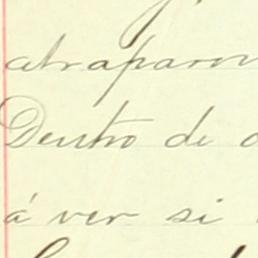 atraparon
Dentro de
á ver si